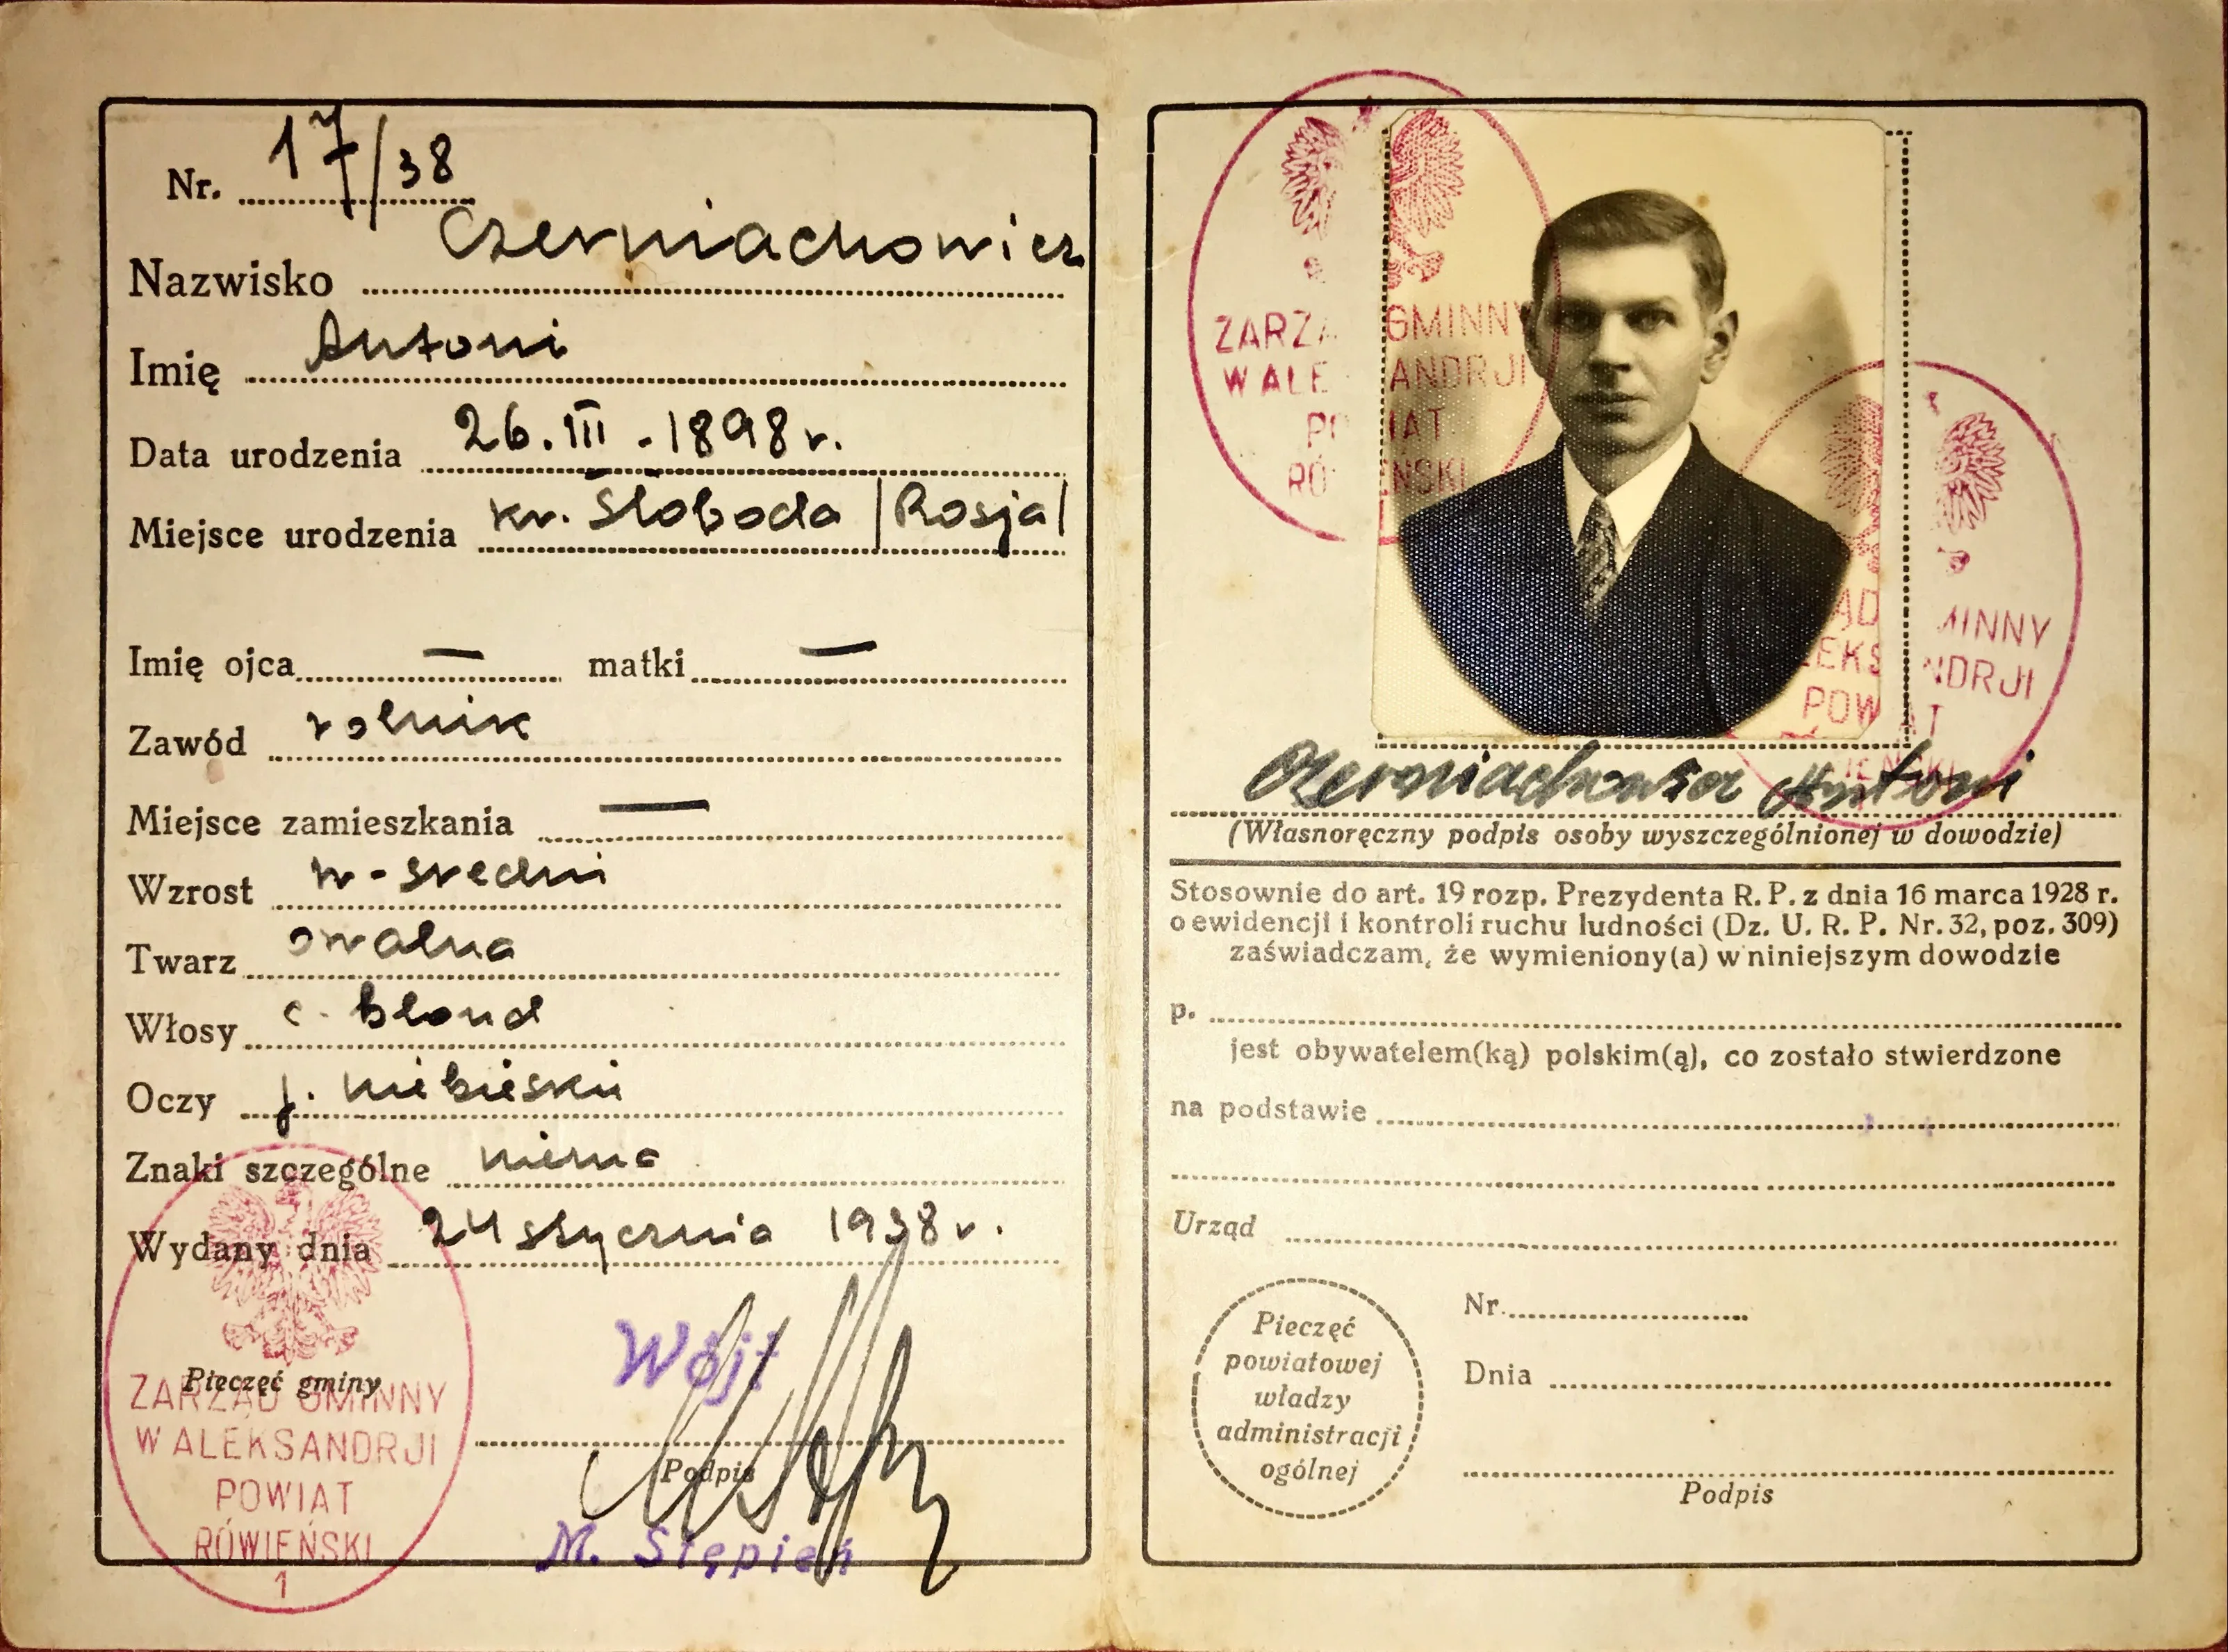 Nr. 17/38
Nazwisko Czerniachowicz
Imię Antoni
Data urodzenia 26.III.-1898 r.
Miejsce urodzenia kr. Słoboda /Rosja/
Imię ojca — matki —
Zawód rolnik
Miejsce zamieszkania —
Wzrost w-średni
Twarz owalna
Włosy c. blond
Oczy j. niebieskie
Znaki szczególne niema
Wydany dnia 24 stycznia 1938 r.
Wójt
Pieczęć gminy
ZARZĄD GMINNY
W ALEKSANDRJI
POWIAT
RÓWIEŃSKI
1
Podpis
M. Stępień
ZARZĄ GMINNY
W ALE ANDRJI
PO IAT
RÓ EŃSKI
ĄD MINNY
LEKS NDRJI
POW AT
IEŃSKI
Antoni
(Własnoręczny podpis osoby wyszczególnionej w dowodzie)
Stosownie do art. 19 rozp. Prezydenta R. P. z dnia 16 marca 1928 r.
o ewidencji i kontroli ruchu ludności (Dz. U. R. P. Nr. 32, poz. 309)
zaświadczam, że wymieniony(a) w niniejszym dowodzie
p.
jest obywatelem(ką) polskim(ą), co zostało stwierdzone
na podstawie
Urząd
Nr.
Dnia
Pieczęć
powiatowej
władzy
administracji
ogólnej
Podpis